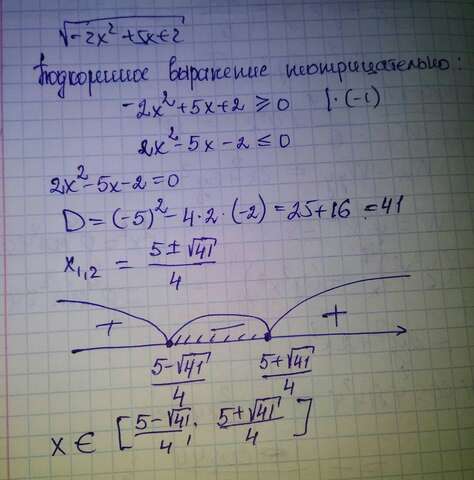 √(-2x² + 5x + 2)
Подкоренное выражение неотрицательно:
-2x² + 5x + 2 ≥ 0 | · (-1)
2x² - 5x - 2 ≤ 0
2x² - 5x - 2 = 0
D = (-5)² - 4 · 2 · (-2) = 25 + 16 = 41
x₁,₂ = (5 ± √41)/4
+ − +
(5 - √41)/4 (5 + √41)/4
x ∈ [(5 - √41)/4; (5 + √41)/4]